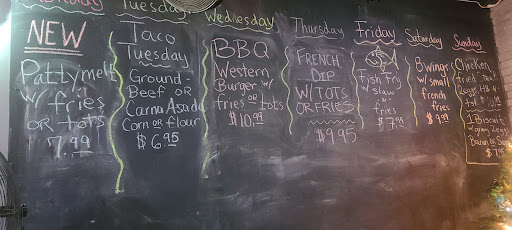 Tuesday
Wednesday
Thursday
Friday
Saturday
Sunday
NEW
Pattymelt
w/ fries
OR tots
7.99
Taco
Tuesday
Ground
Beef OR
Carna Asada
Corn OR flour
$6.95
BBQ
Western
Burger w/
fries OR tots
$10.99
FRENCH
DIP
W/TOTS
OR FRIES
$9.95
Fish Fry
w/ slaw
n
fries
$7.95
8 wings
w/ small
french
fries
$9.99
Chicken
fried
1 Biscuit
w/ gravy 2 eggs
Bacon OR